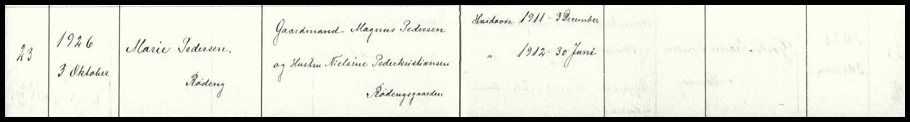 23
1926
3 Oktober
Marie Pedersen,
Rödeng
Gaardmand Magnus Pedersen
og Hustru Nielsine Pederkristiansen
Rödengsgaarden
1911 - 3 December
" 1912 - 30 Juni